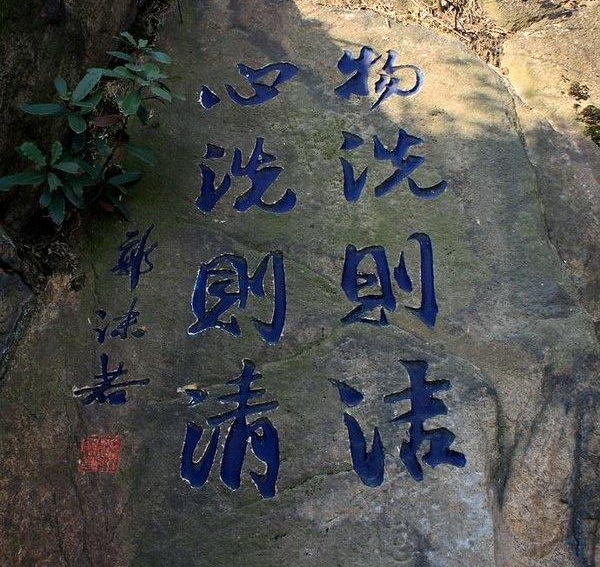 物洗則洁
心洗則清
郭沫若